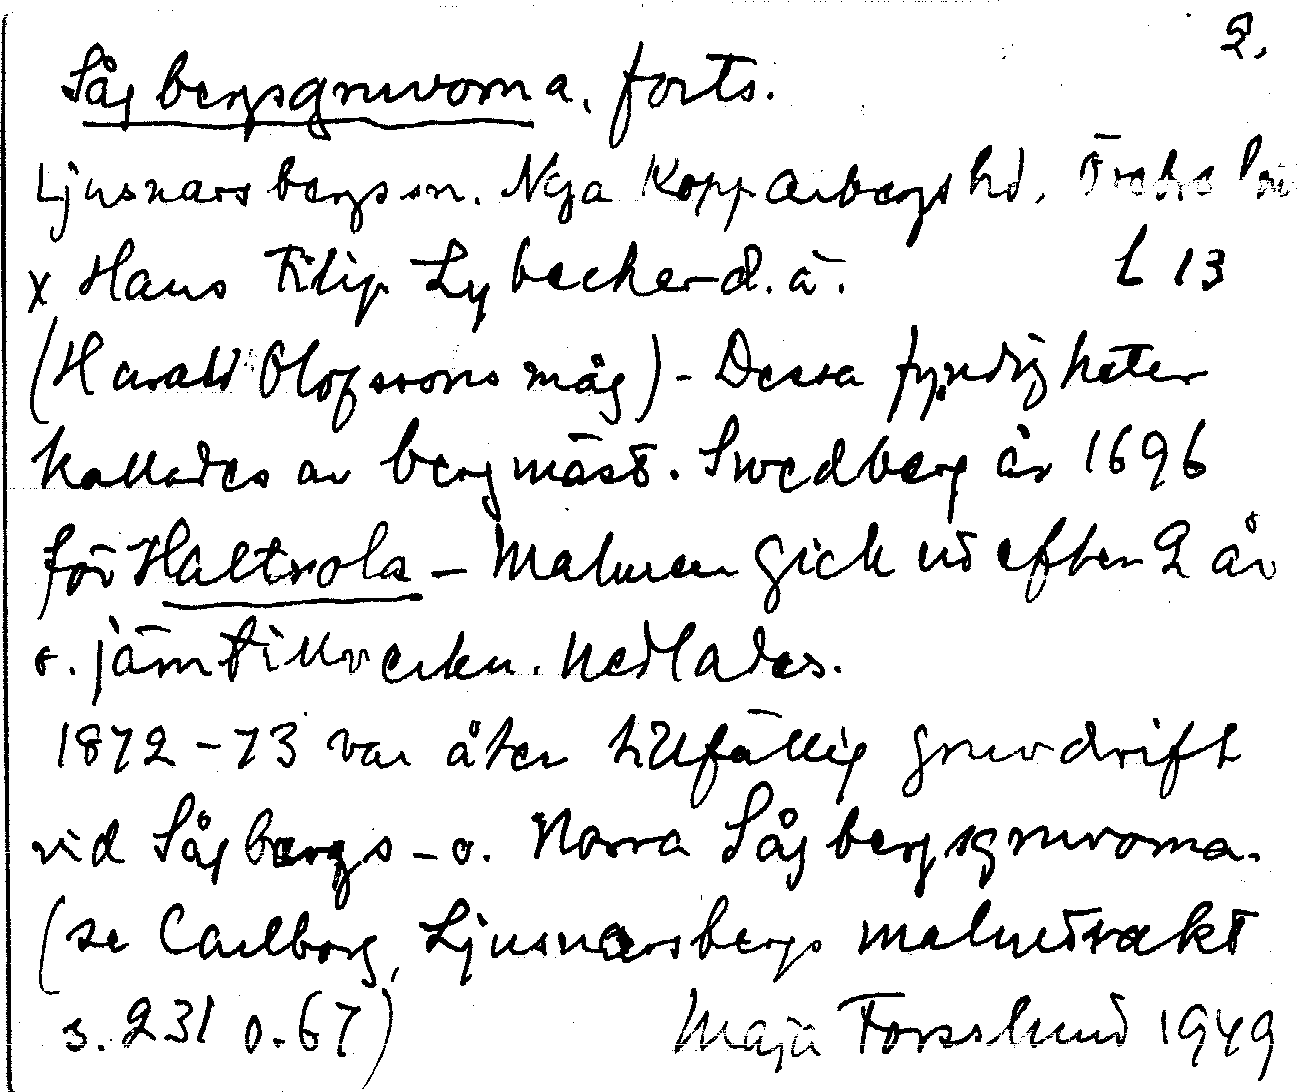 2.
Sågbergsgruvorna, forts.
Ljusnarsbergs sn. Nya Kopparbergs hd. Örebro län
x Hans Filip Lybecker d.ä. L 13
(Harald Olofssons måg) - Dessa fyndigheter
kallades av bergmäst. Swedberg år 1696
för Håltvola - Malmen gick ut efter 2 år
o. järntillverkn. nedlades.
1872-73 var åter tillfällig gruvdrift
vid Sågbergs- o. Norra Sågbergsgruvorna.
(se Carlborg, Ljusnarsbergs malmtrakt
s. 231 o. 67) Maja Forsslund 1949